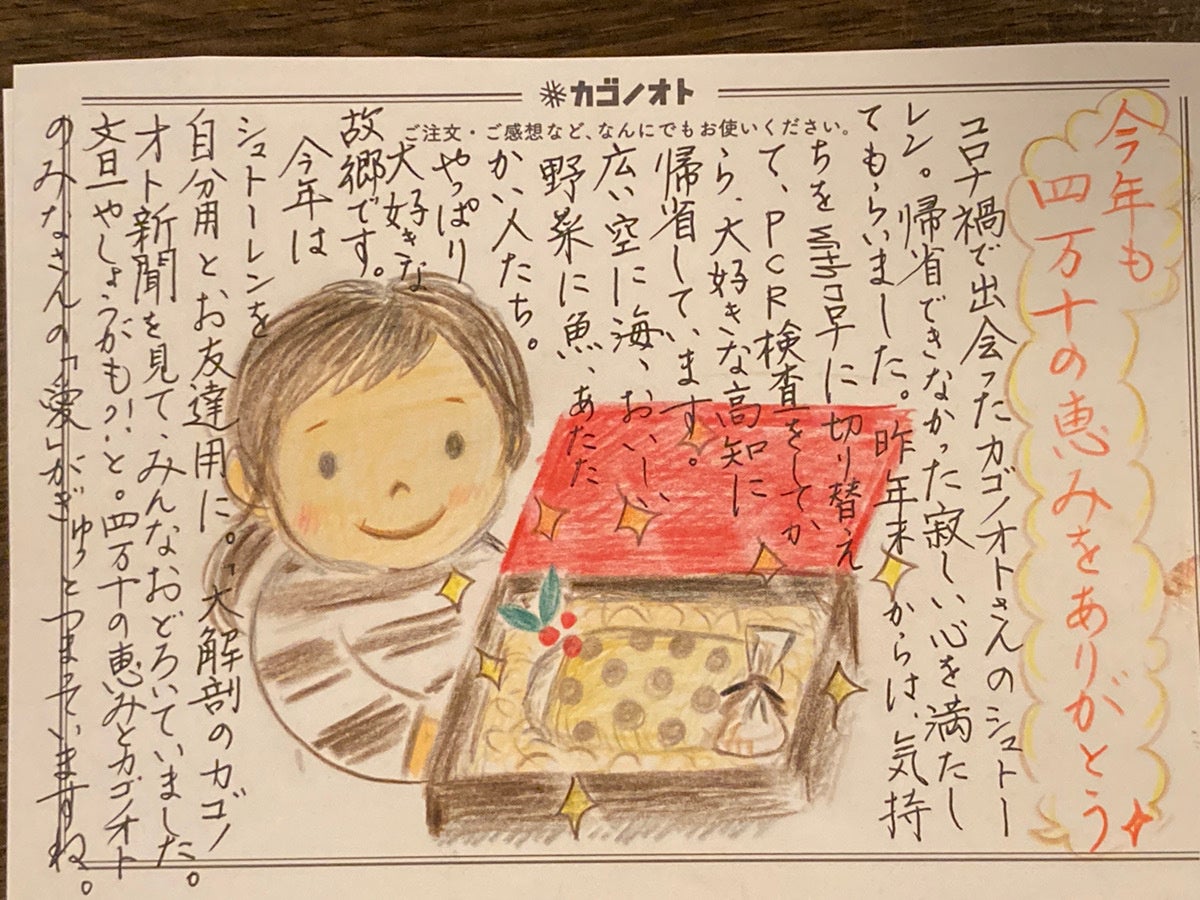 カゴノオト
ご注文・ご感想など、なんにでもお使いください。
今年も
四万十の恵みをありがとう
コロナ禍で出会ったカゴノオトさんのシュトー
レン。帰省できなかった寂しい心を満たし
てもらいました。昨年末からは、気持
ちをwithコロナに切り替え
て、PCR検査をしてか
ら、大好きな高知に
帰省しています。
広い空に海、おいしい
野菜に魚、あたた
かい人たち。
やっぱり
大好きな
故郷です。
今年は
シュトーレンを
自分用とお友達用に。「大解剖のカゴノ
オト新聞を見て、みんなおどろいていました。
文旦やしょうがも!!と。四万十の恵みとカゴノオト
のみなさんの「愛」がぎゅっとつまっていますね。